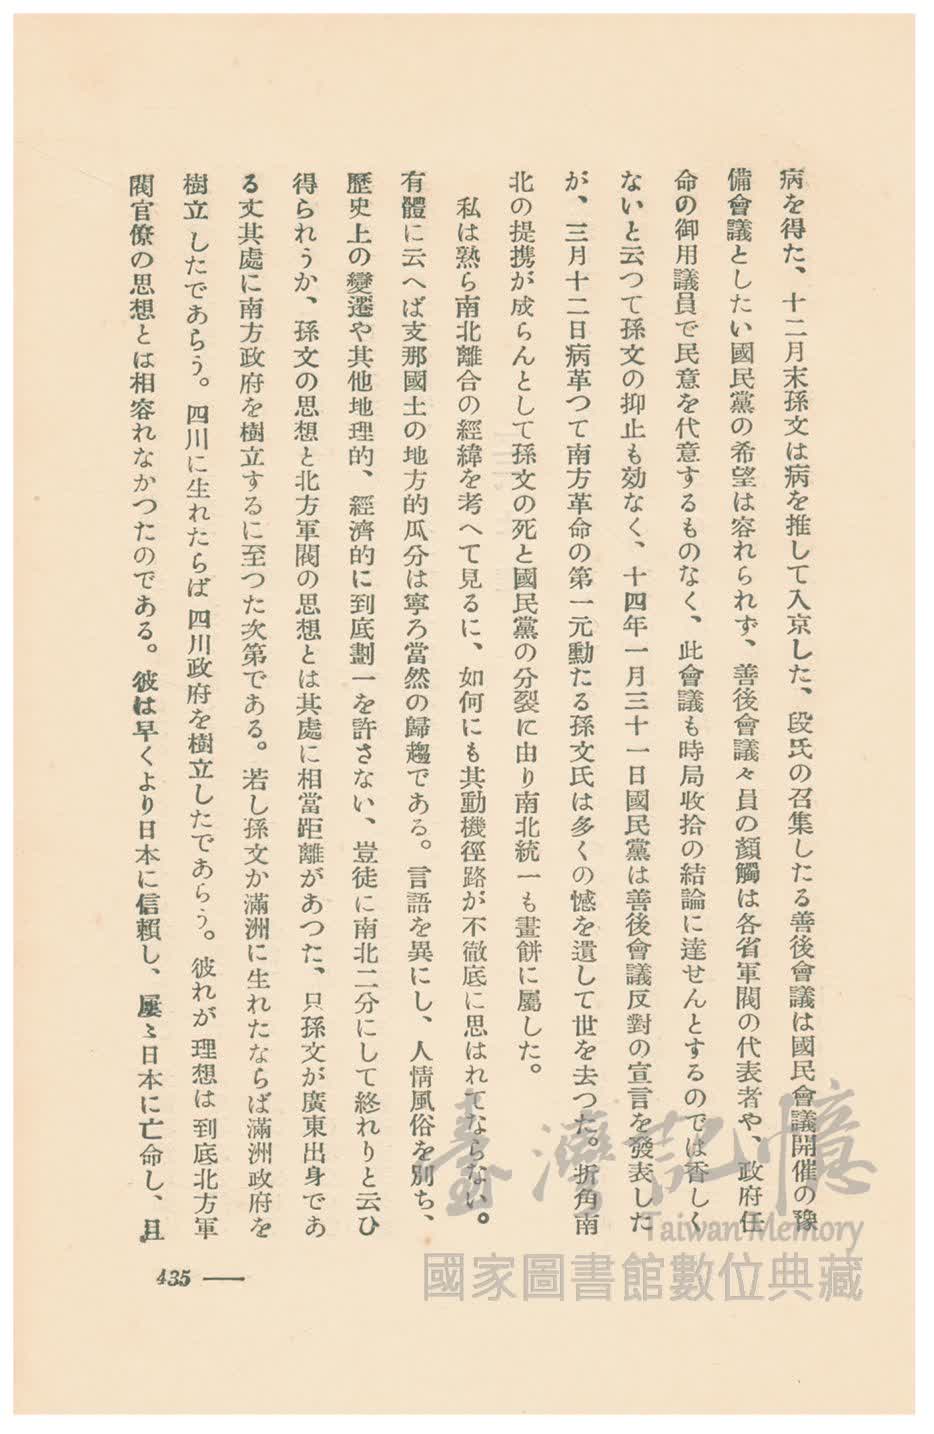 病を得た、十二月末孫文は病を推して入京した、段氏の召集したる善後會議は國民會議開催の豫
備會議としたい國民黨の希望は容れられず、善後會議々員の顏觸は各省軍閥の代表者や、政府任
命の御用議員で民意を代意するものなく、此會議も時局收拾の結論に達せんとするのでは香しく
ないと云つて孫文の抑止も効なく、十四年一月三十一日國民黨は善後會議反對の宣言を發表した
が、三月十二日病革つて南方革命の第一元勳たる孫文氏は多くの憾を遺して世を去つた。折角南
北の提携が成らんとして孫文の死と國民黨の分裂に由り南北統一も畫餅に屬した。
私は熟ら南北離合の經緯を考へて見るに、如何にも其動機徑路が不徹底に思はれてならない。
有體に云へば支那國土の地方的瓜分は寧ろ當然の歸趨である。言語を異にし、人情風俗を別ち、
歷史上の變遷や其他地理的、經濟的に到底劃一を許さない、豈徒に南北二分にして終れりと云ひ
得られうか、孫文の思想と北方軍閥の思想とは其處に相當距離があつた、只孫文が廣東出身であ
る丈其處に南方政府を樹立するに至つた次第である。若し孫文か滿洲に生れたならば滿洲政府を
樹立したであらう。四川に生れたらば四川政府を樹立したであらう。彼れが理想は到底北方軍
閥官僚の思想とは相容れなかつたのである。彼は早くより日本に信賴し、屢〻日本に亡命し、且
435 ——
臺灣記憶
Taiwan Memory
國家圖書館數位典藏